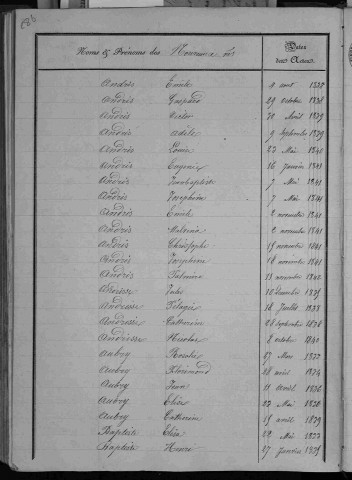 Noms & Prénoms des Nouveaux nés
Dates
des Actes
Andrés Emile 9 aout 1838
Andrés Gaspard 29 octobre 1838
Andrés Victor 30 Avril 1839
Andrés Adèle 9 septembre 1839
Andrés Louis 23 Mai 1840
Andrés Eugénie 16 janvier 1841
Andrés Jeanbaptiste 7 Mai 1841
Andrés Joséphine 7 Mai 1841
Andrés Emile 2 novembre 1841
Andrés 2 novembre 1841
Andrés Christophe 15 novembre 1841
Andrés Joséphine 18 novembre 1841
Andrés Palmire 11 novembre 1842
Jules 10 décembre 1835
Andresse Pélagie 18 Juillet 1833
Andresse Catherine 28 septembre 1836
Andresse Nicolas 8 octobre 1840
Aubry Rosalie 27 Mars 1833
Aubry Florimond 28 août 1834
Aubry Jean 11 avril 1836
Aubry Elise 23 Mai 1838
Aubry Catherine 15 avril 1839
Baptiste Elisa 22 Mai 1833
Baptiste Henri 27 janvier 1835